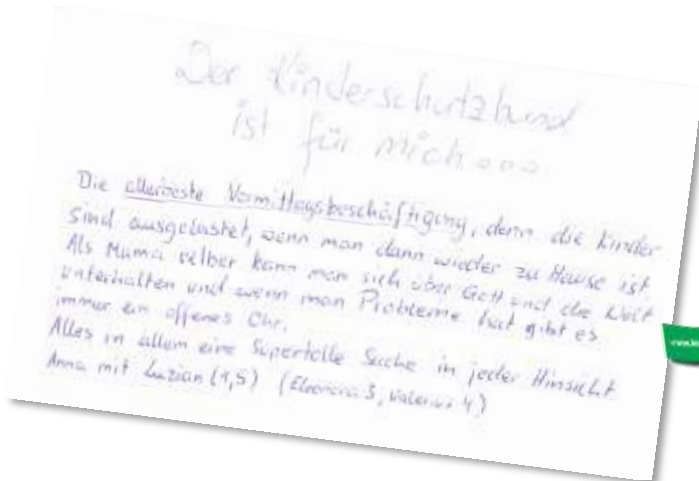 Der Kinderschutzbund
ist für mich...
Die allerbeste Vormittagsbeschäftigung, denn die Kinder
sind ausgelastet, wenn man dann wieder zu Hause ist.
Als Mama selber kann man sich über Gott und die Welt
unterhalten und wenn man Probleme hat gibt es
immer ein offenes Ohr.
Alles in allem eine supertolle Sache in jeder Hinsicht
Anna mit Luzian (1,5) (Eleonora 3, Valerius 4)